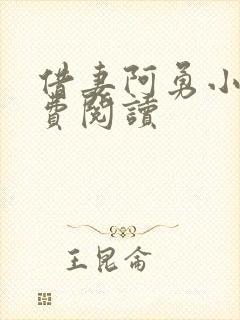 借妻阿勇小
費閱讀
王昆侖